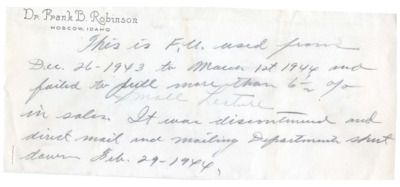 Dr. Frank B. Robinson
MOSCOW, IDAHO
This is F.U. used from
Dec. 26-1943 to March 1st 1944 and
failed to pull more than 6½ %
Small Lecture
in sales. It was discontinued and
direct mail and mailing Department shut
down Feb. 29-1944.